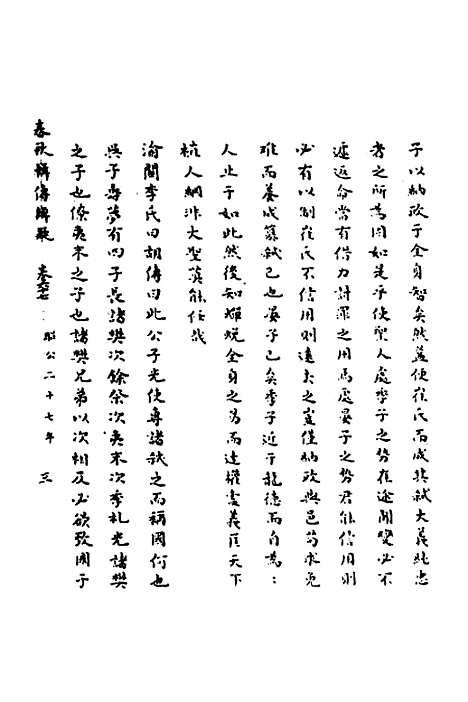 子以納政于全身智矣然蓋使崔氏而成其弑大義純忠
者之所為固如是乎使聖人處季子之勢在途聞變必不
遽返命當有借力討罪之用焉處晏子之勢君能信用則
必有以制崔氏不信用則遠去之豈僅納政與邑苟求免
难而養成篡弑已也晏子已矣季子近于龍德而自為
人止于如此然後知難蜕全身之易而達權變義匡天下
植人綱非大聖莫能任哉
渝關李氏曰胡傳曰此公子光使專諸弑之而稱國何也
吳子壽夢有四子長諸樊次餘祭次夷末次季札光諸樊
之子也僚夷末之子也諸樊兄弟以次相及必欲致國于
春秋辨傳辨疑 卷六七 昭公二十七年 三